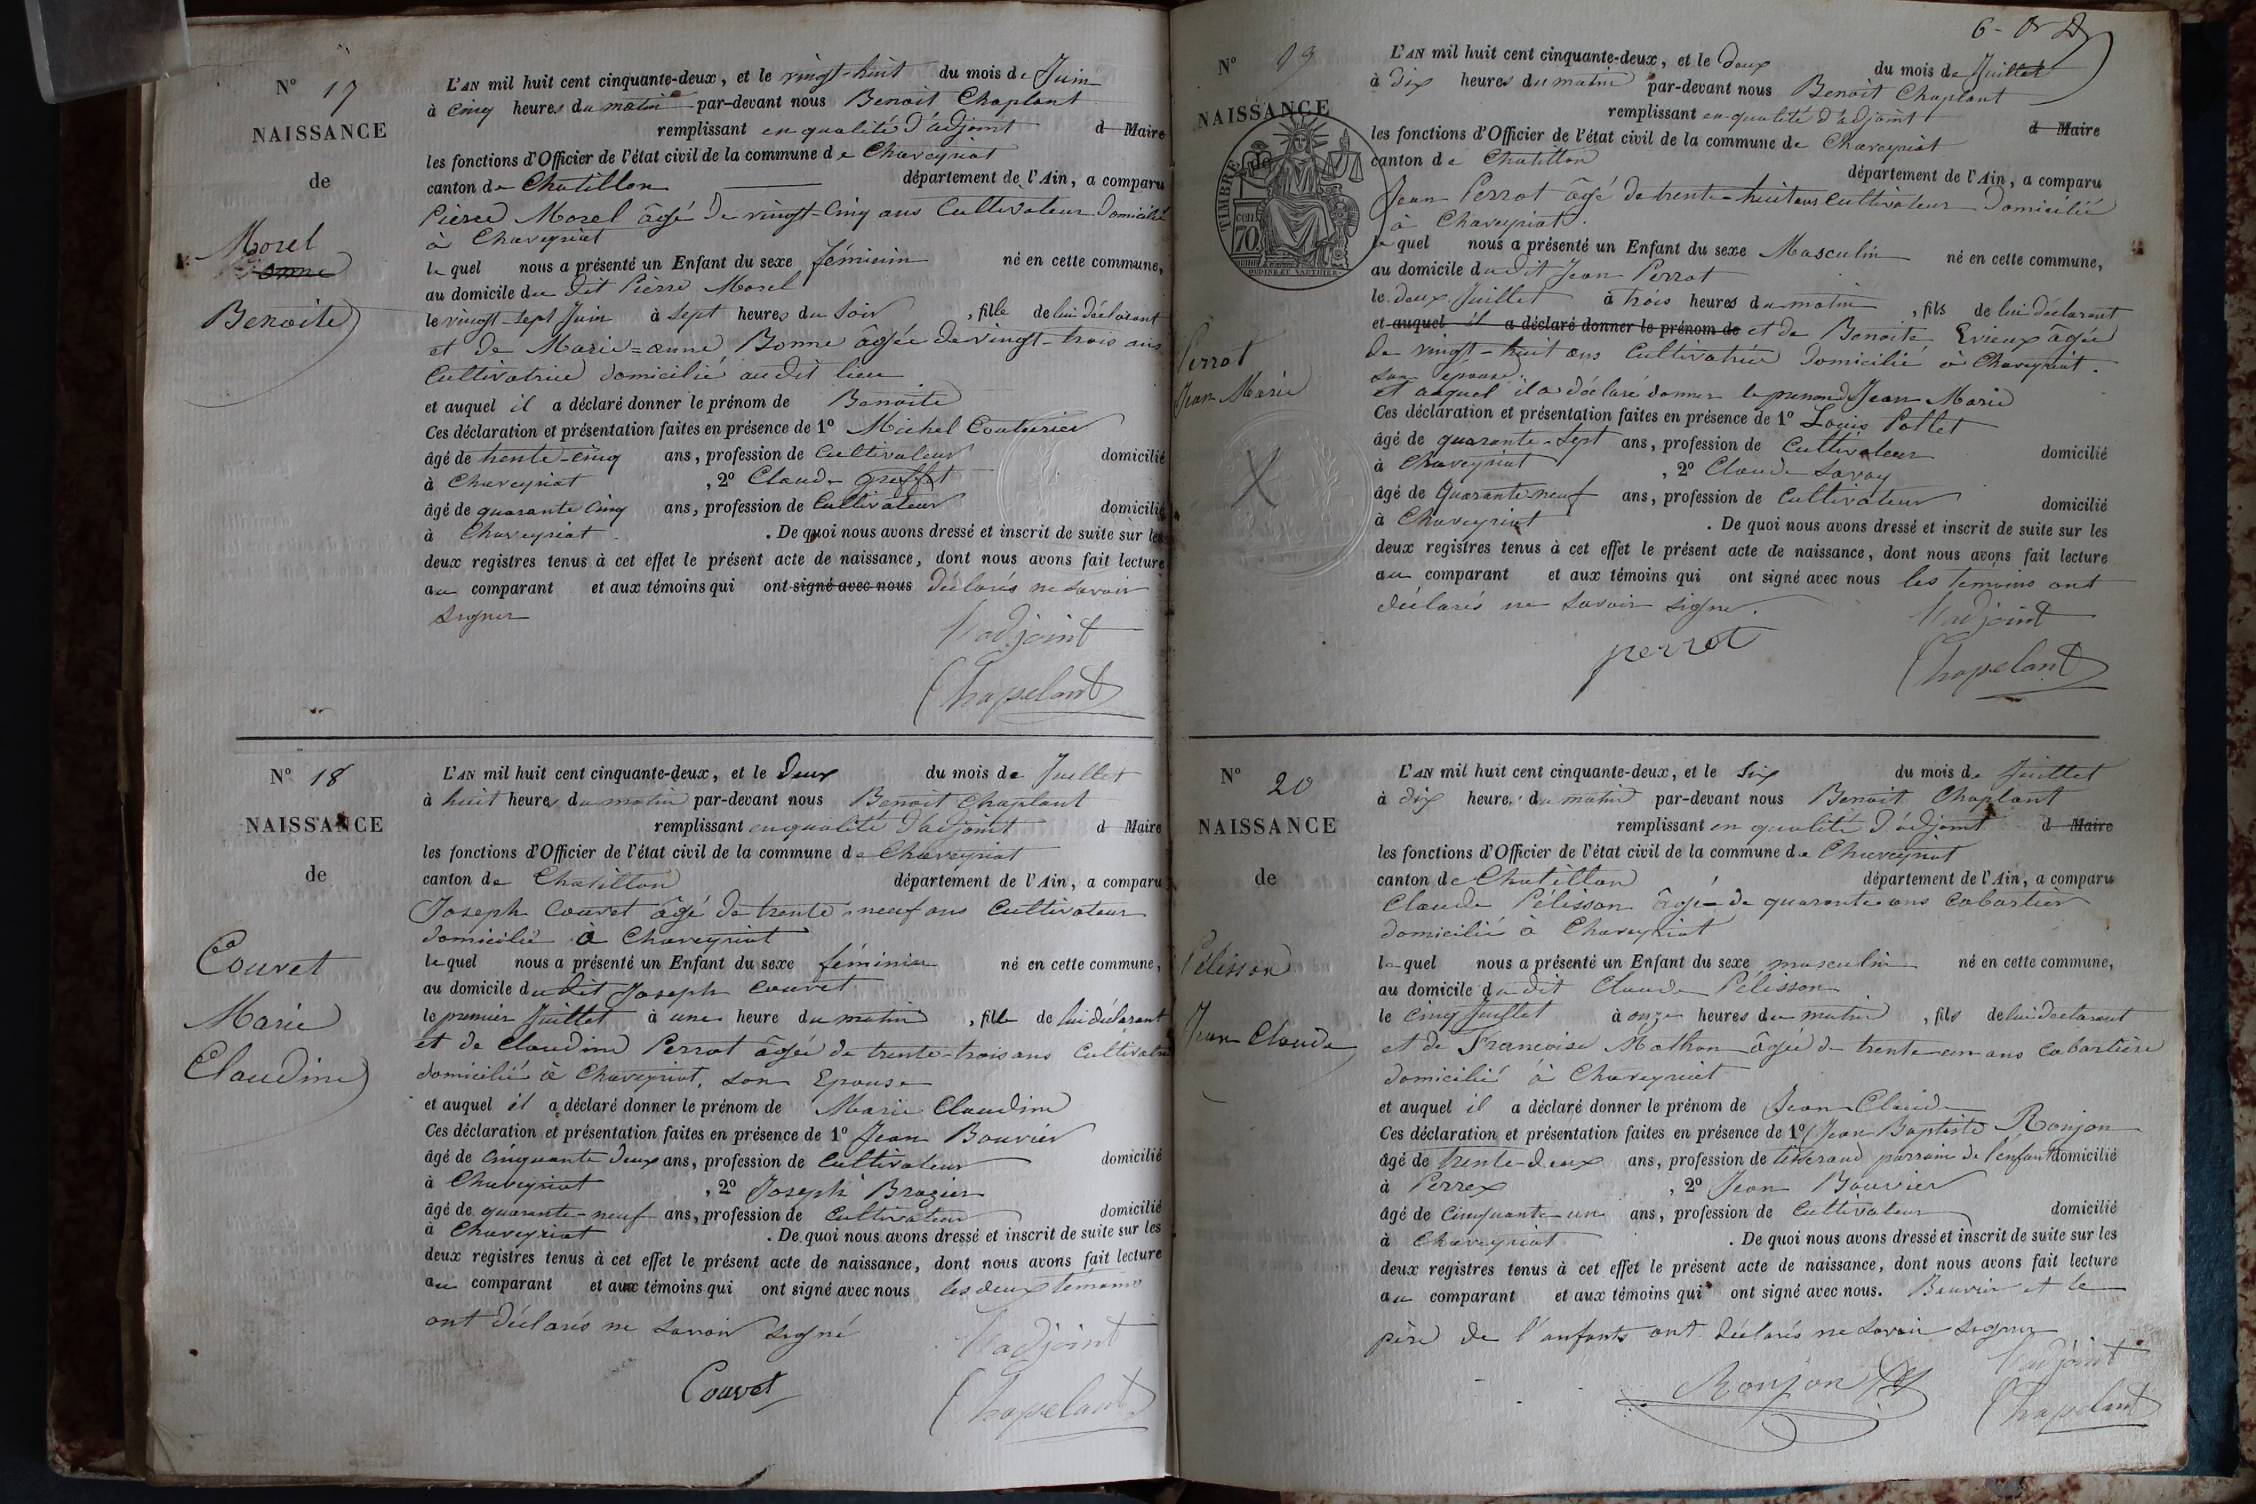 N° 17
NAISSANCE
de
Morel
Benoite
L'AN mil huit cent cinquante-deux, et le vingt-huit du mois de Juin
à cinq heures du matin par-devant nous Benoit Chaplant
remplissant en qualité d'adjoint d Maire
les fonctions d'Officier de l'état civil de la commune de Chaveyriat
canton de Chatillon département de l'Ain, a comparu
Pierre Morel âgé de vingt-cinq ans Cultivateur domicilié
à Chaveyriat
lequel nous a présenté un Enfant du sexe féminin né en cette commune,
au domicile du dit Pierre Morel
le vingt-sept Juin à sept heures du soir, fille de lui déclarant
et de Marie-anne Bonne âgée de vingt-trois ans
Cultivatrice domicilié au dit lieu
et auquel il a déclaré donner le prénom de Benoite
Ces déclaration et présentation faites en présence de 1° Michel Couturier
âgé de trente-cinq ans, profession de Cultivateur domicilié
à Chaveyriat, 2° Claude Greffet
âgé de quarante cinq ans, profession de Cultivateur domicilié
à Chaveyriat. De quoi nous avons dressé et inscrit de suite sur les
deux registres tenus à cet effet le présent acte de naissance, dont nous avons fait lecture
au comparant et aux témoins qui ont signé avec nous déclarés ne savoir
signer
l'adjoint
Chapelant
N° 18
NAISSANCE
de
Couvet
Marie
Claudine
L'AN mil huit cent cinquante-deux, et le deux du mois de Juillet
à huit heures du matin par-devant nous Benoit Chaplant
remplissant en qualité d'adjoint d Maire
les fonctions d'Officier de l'état civil de la commune de Chaveyriat
canton de Chatillon département de l'Ain, a comparu
Joseph Couvet âgé de trente-neuf ans Cultivateur
domicilié à Chaveyriat
lequel nous a présenté un Enfant du sexe féminin né en cette commune,
au domicile dudit Joseph Couvet
le premier Juillet à une heure du matin, fille de lui déclarant
et de Claudine Perrot âgée de trente-trois ans Cultivatrice
domicilié à Chaveyriat, son Epouse
et auquel il a déclaré donner le prénom de Marie Claudine
Ces déclaration et présentation faites en présence de 1° Jean Bouvier
âgé de cinquante deux ans, profession de Cultivateur domicilié
à Chaveyriat, 2° Joseph Brazier
âgé de quarante-neuf ans, profession de Cultivateur domicilié
à Chaveyriat. De quoi nous avons dressé et inscrit de suite sur les
deux registres tenus à cet effet le présent acte de naissance, dont nous avons fait lecture
au comparant et aux témoins qui ont signé avec nous les deux témoins
ont déclarés ne savoir signé
l'adjoint
Couvet
Chapelant
N° 19
NAISSANCE
de
TIMBRE
cen 70
OUDINE ET VAUTHIER
Perrot
Jean Marie
X
L'AN mil huit cent cinquante-deux, et le deux du mois de Juillet
à dix heures du matin par-devant nous Benoit Chaplant
remplissant en qualité d'adjoint d Maire
les fonctions d'Officier de l'état civil de la commune de Chaveyriat
canton de Chatillon département de l'Ain, a comparu
Jean Perrot âgé de trente-huit ans Cultivateur domicilié
à Chaveyriat.
lequel nous a présenté un Enfant du sexe Masculin né en cette commune,
au domicile dudit Jean Perrot
le deux Juillet à trois heures du matin, fils de lui déclarant
et auquel il a déclaré donner le prénom de et de Benoite Evieux âgée
de vingt-huit ans Cultivatrice domicilié à Chaveyriat.
son epouse
et auquel il a déclaré donner le prenom Jean Marie
Ces déclaration et présentation faites en présence de 1° Louis Pollet
âgé de quarante-sept ans, profession de Cultivateur domicilié
à Chaveyriat, 2° Claude Savoy
âgé de Quarante neuf ans, profession de Cultivateur domicilié
à Chaveyriat. De quoi nous avons dressé et inscrit de suite sur les
deux registres tenus à cet effet le présent acte de naissance, dont nous avons fait lecture
au comparant et aux témoins qui ont signé avec nous les temoins ont
déclarés ne savoir signer.
l'adjoint
perrot
Chapelant
N° 20
NAISSANCE
de
Pélisson
Jean Claude
L'AN mil huit cent cinquante-deux, et le six du mois de Juillet
à dix heures du matin par-devant nous Benoit Chaplant
remplissant en qualité d'adjoint d Maire
les fonctions d'Officier de l'état civil de la commune de Chaveyriat
canton de Chatillon département de l'Ain, a comparu
Claude Pélisson âgé de quarante ans Cabartier
domicilié à Chaveyriat
lequel nous a présenté un Enfant du sexe masculin né en cette commune,
au domicile dudit Claude Pélisson
le cinq Juillet à onze heures du matin, fils de lui déclarant
et de Francoise Mathon âgée de trente un ans cabartière
domicilié à Chaveyriat
et auquel il a déclaré donner le prénom de Jean Claude
Ces déclaration et présentation faites en présence de 1° Jean Baptiste Ronjon
âgé de trente-deux ans, profession de tisserand parrain de l'enfant domicilié
à Perrex, 2° Jean Bouvier
âgé de Cinquante un ans, profession de Cultivateur domicilié
à Chaveyriat. De quoi nous avons dressé et inscrit de suite sur les
deux registres tenus à cet effet le présent acte de naissance, dont nous avons fait lecture
au comparant et aux témoins qui ont signé avec nous. Bouvier et le
père de l'enfants ont déclarés ne savoir signer
l'adjoint
Ronjon
Chapelant